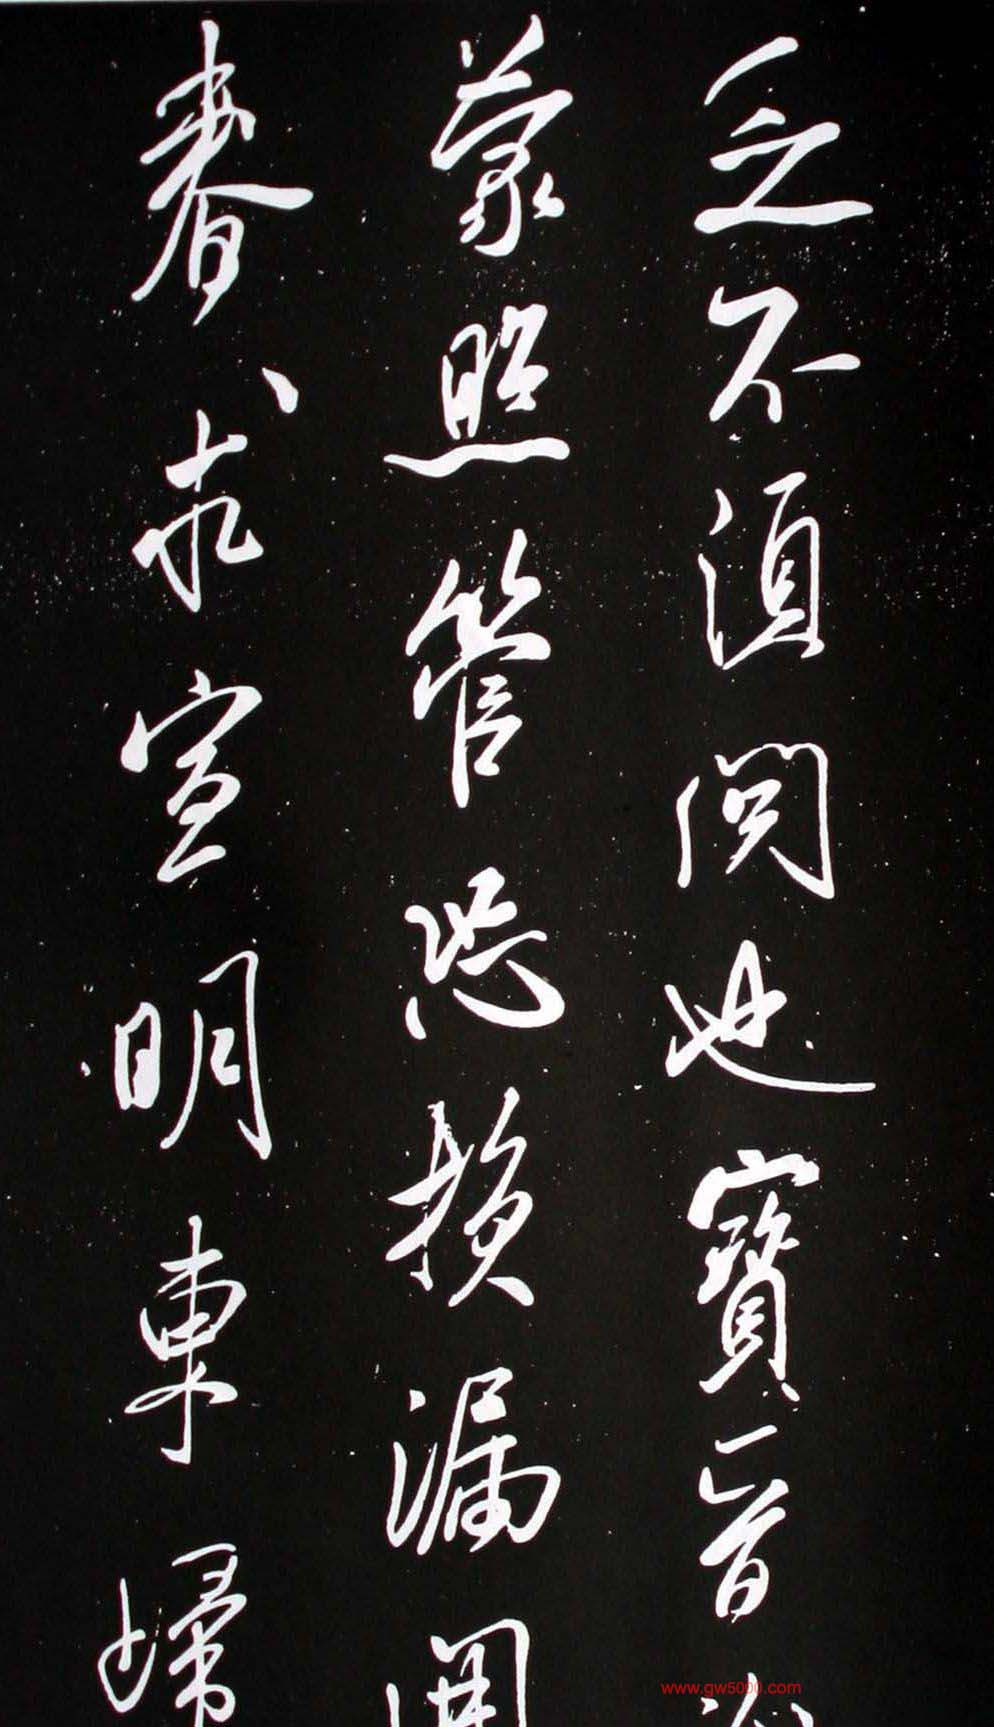 乏不須閱也寶晉
蒙照管恐損漏開
春求宣明東歸
www.gw5000.com